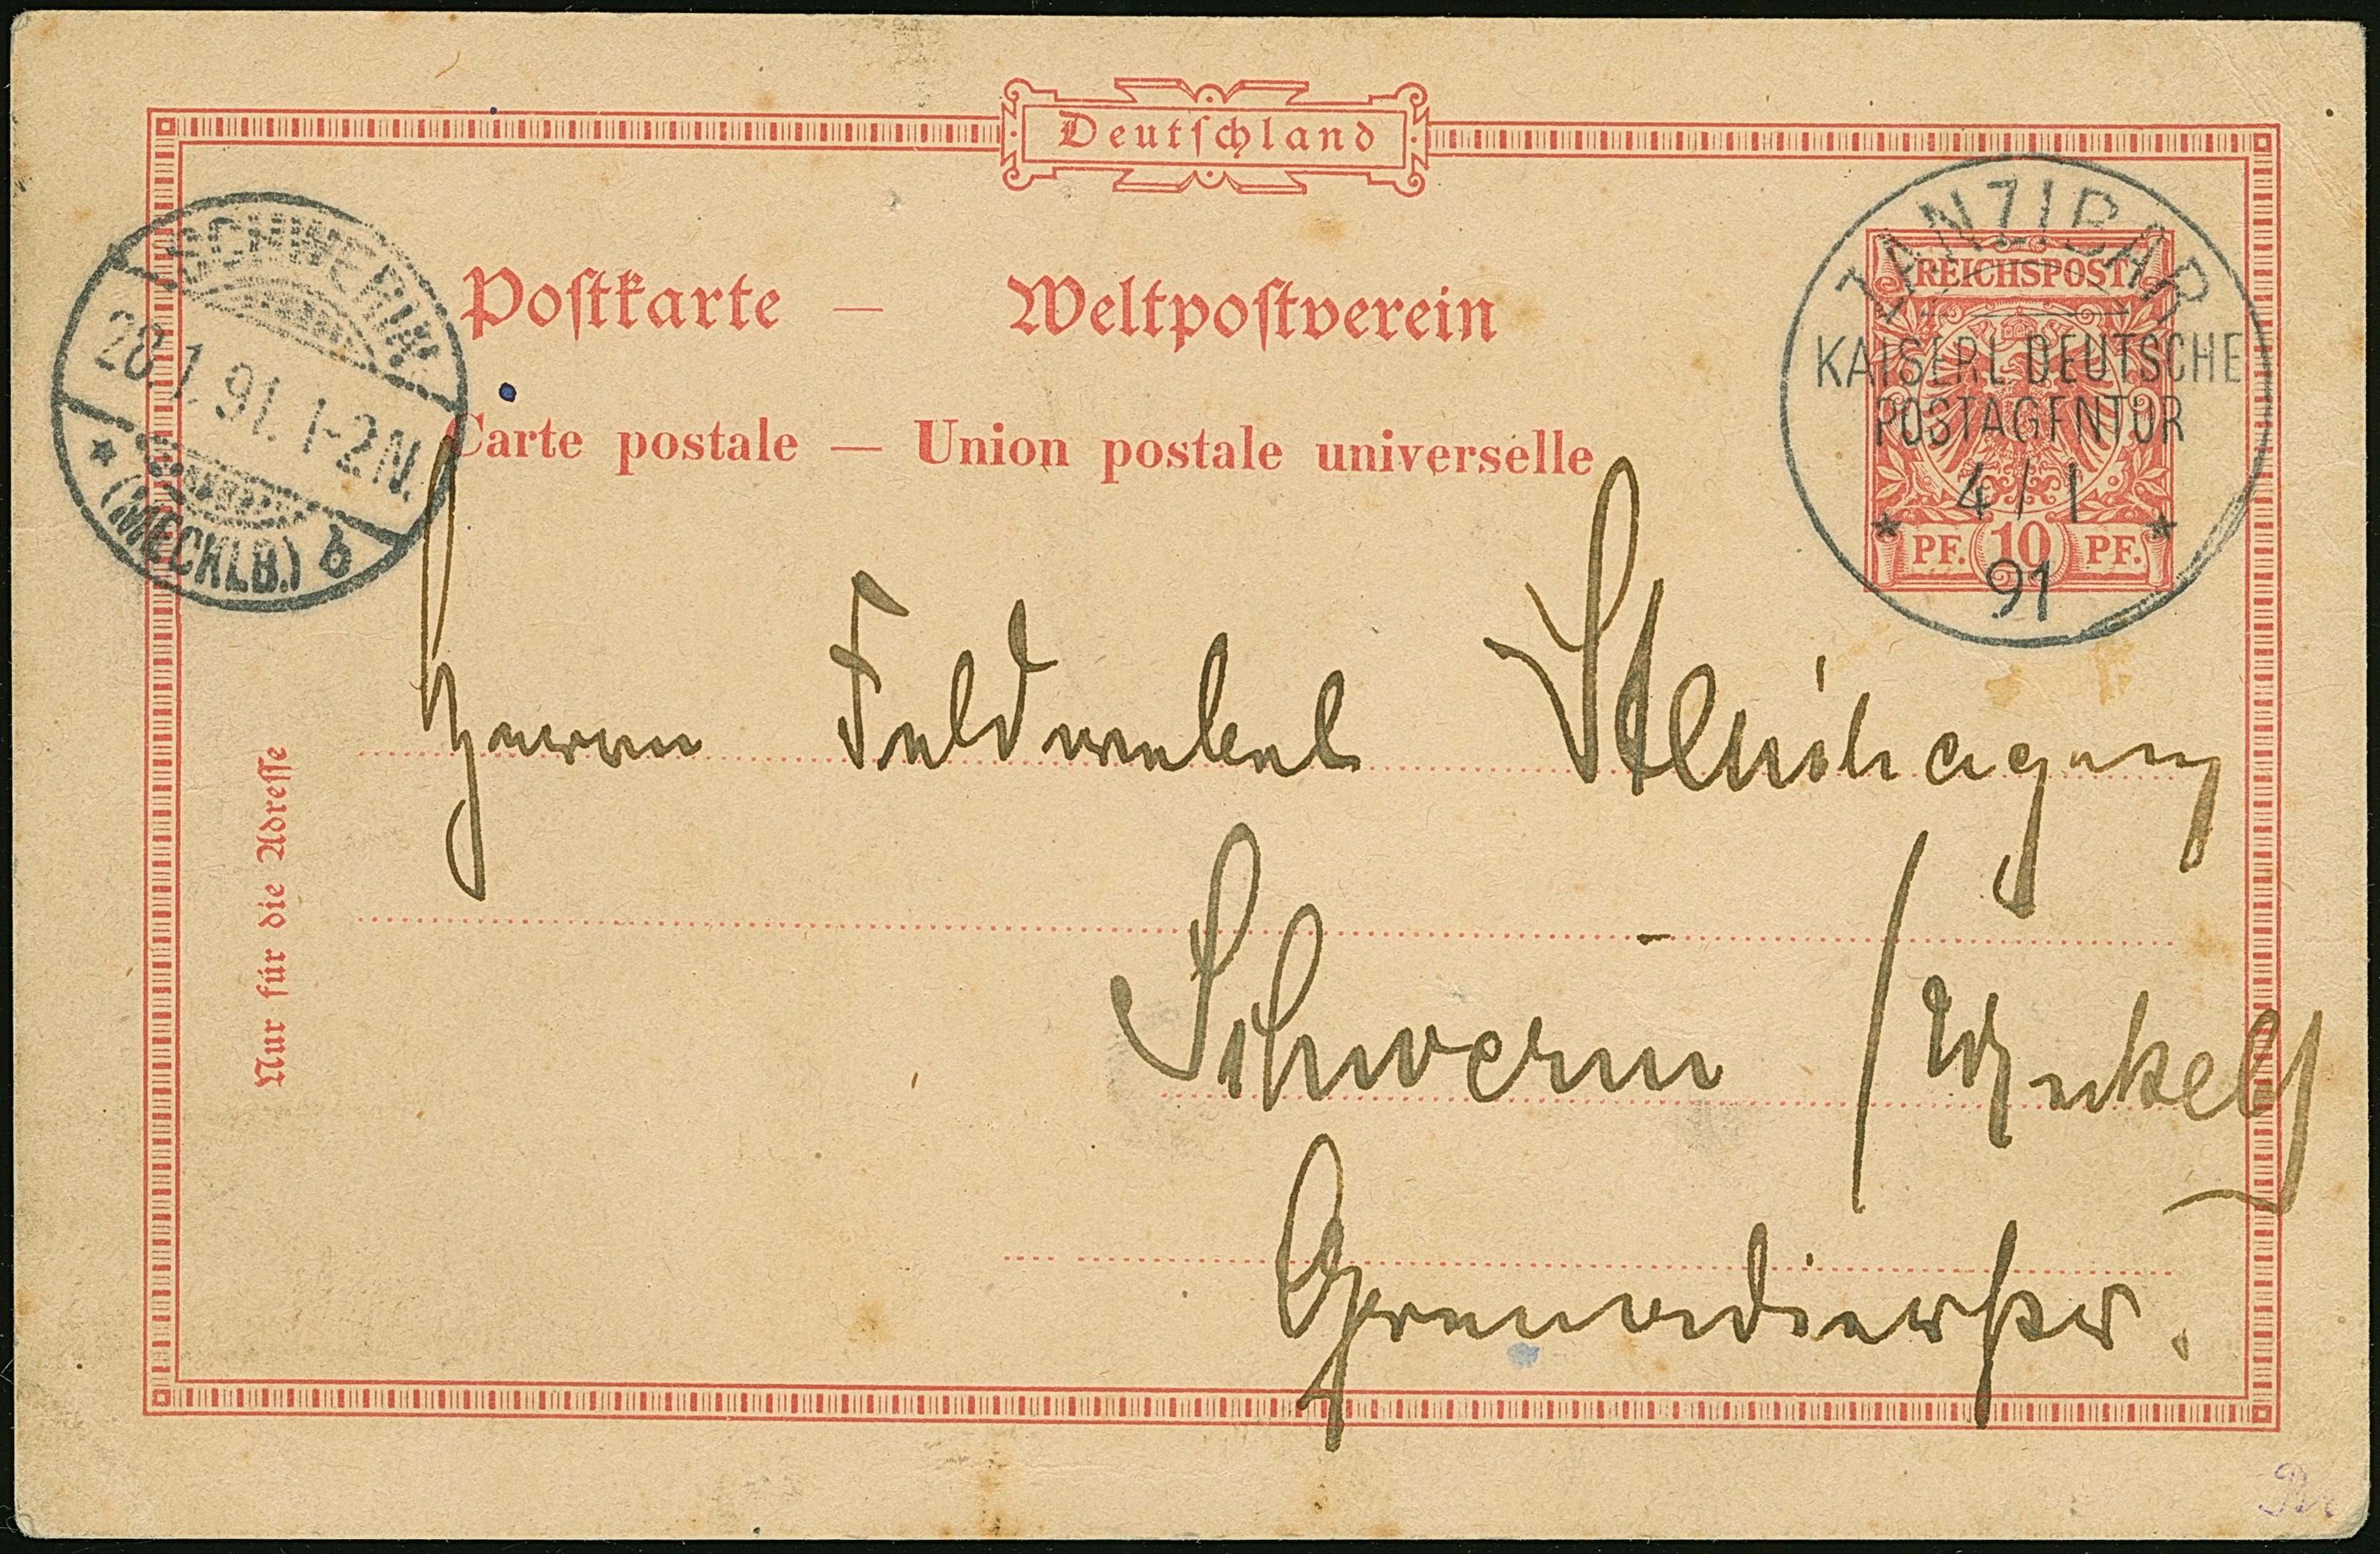 Deutſchland
Poſtkarte — Weltpoſtverein
Carte postale — Union postale universelle
SCHWERIN
28.1.91.1-2N.
* (MECKLB.) b
REICHSPOST
PF. 10 PF.
ZANZIBAR
KAISERL. DEUTSCHE
POSTAGENTUR
* 4/1 *
91
Nur für die Adreſſe
Herrn Feldwebel
Schwerin /